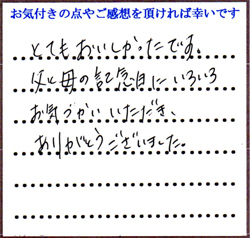 お気付きの点やご感想を頂ければ幸いです
とてもおいしかったです。
父と母の記念日にいろいろ
お気づかいいただき、
ありがとうございました。